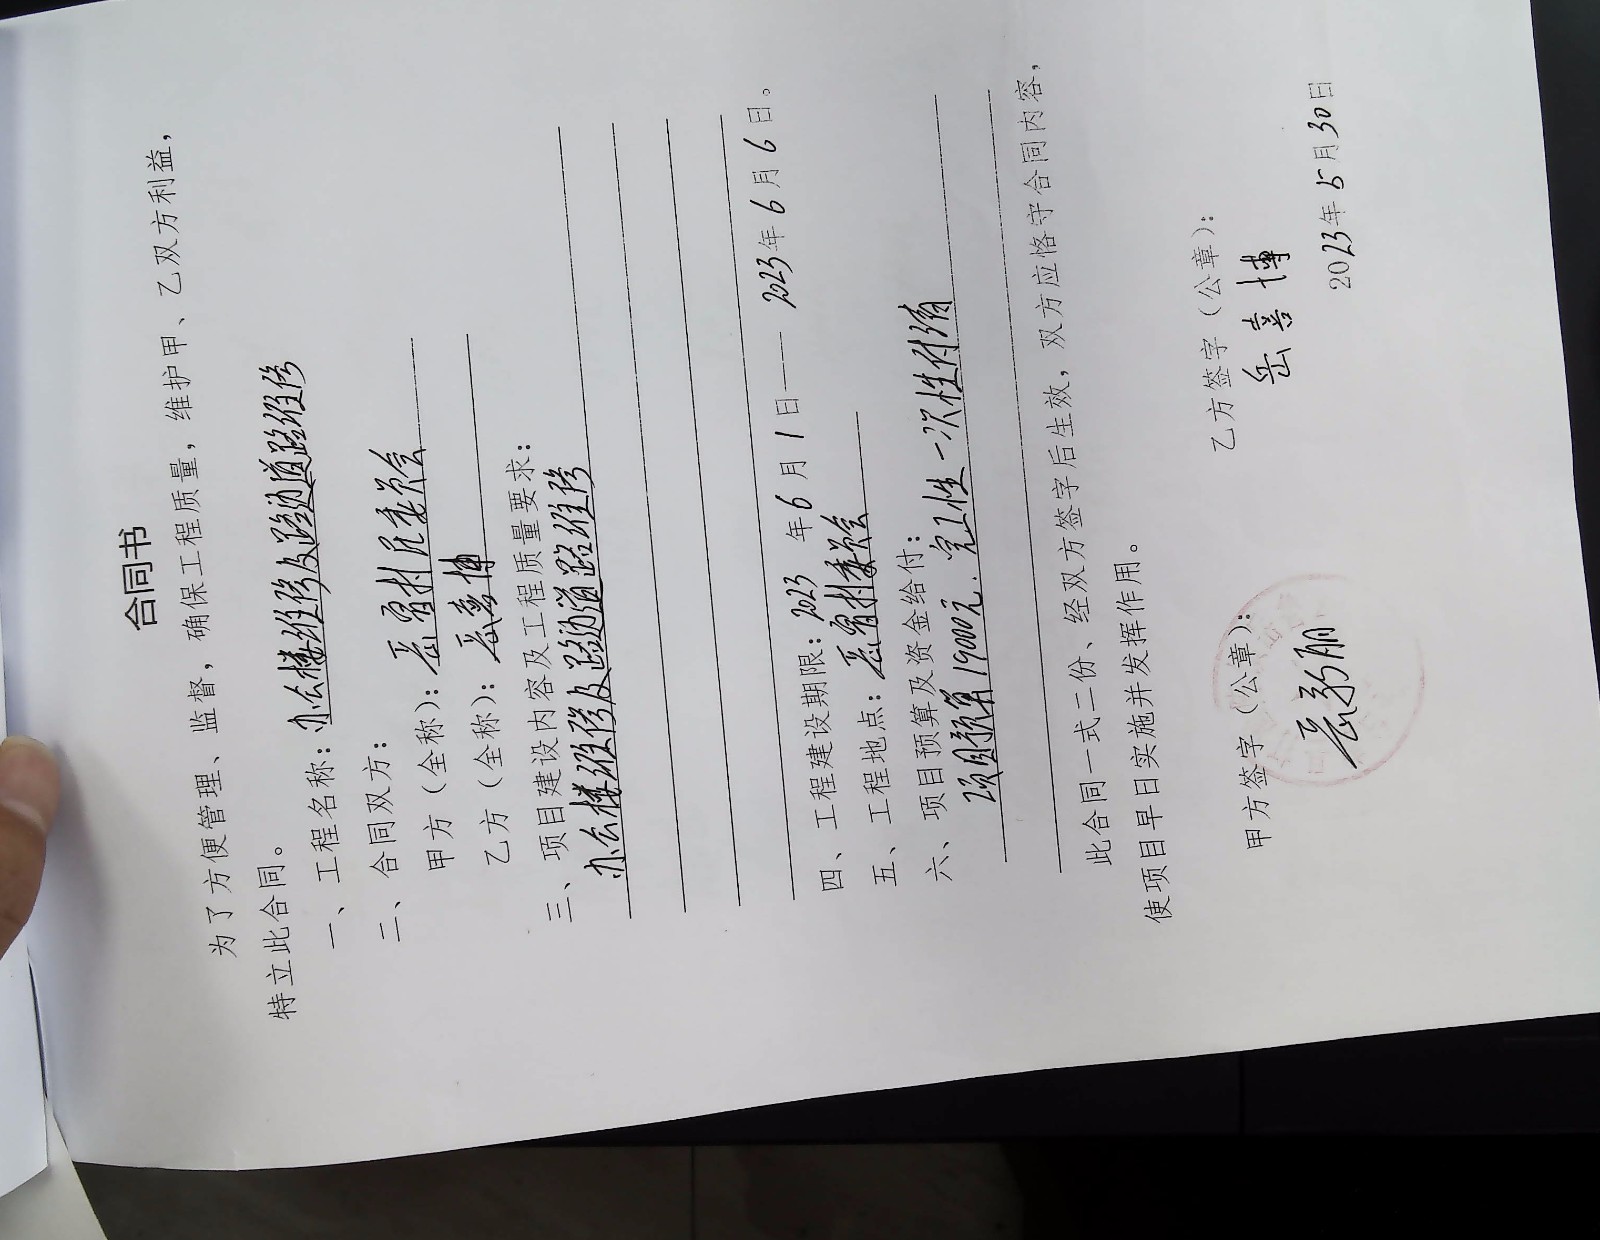 合同书
为了方便管理、监督，确保工程质量，维护甲、乙双方利益，
特立此合同。
一、工程名称：办公楼维修及路边道路维修
二、合同双方：
甲方（全称）：岳胥村民委员会
乙方（全称）：岳喜博
三、项目建设内容及工程质量要求：
办公楼维修及路边道路维修
四、工程建设期限：2023 年 6 月 1 日—— 2023 年 6 月 6 日。
五、工程地点：岳胥村委员会
六、项目预算及资金给付：
项目预算19000元. 完工性 一次性付清
此合同一式二份、经双方签字后生效，双方应恪守合同内容，
使项目早日实施并发挥作用。
甲方签字（公章）： 乙方签字（公章）：
岳喜博
2023年 5 月 30日